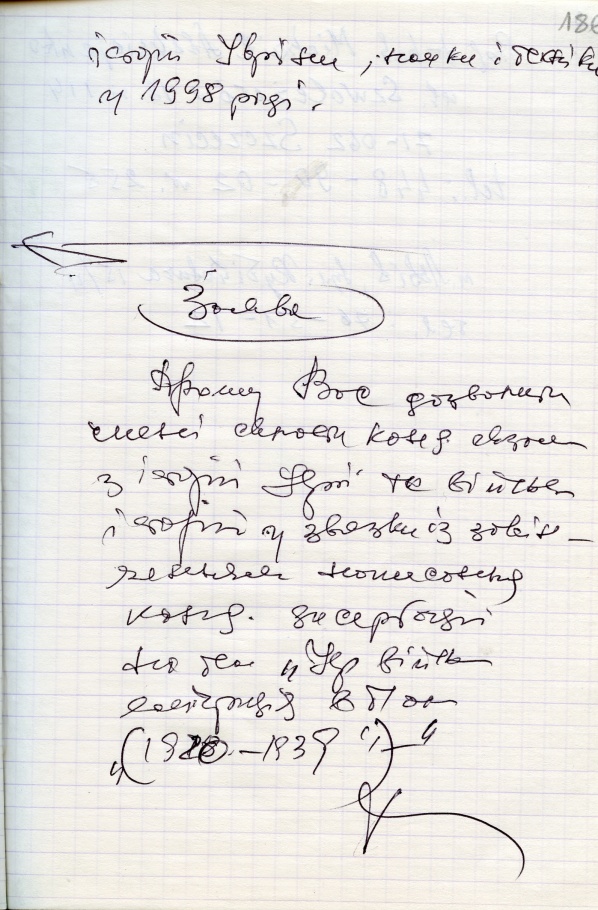 186
історії України, науки і техніки
у 1998 році.
Заява
Прошу Вас дозволити
мені скласти канд. екзам
з історії Укр. та військ
історії у звязку із завін-
ченням написання
канд. дисертації
на тему "Укр військ
еміграція в Пол
(1920 – 1939